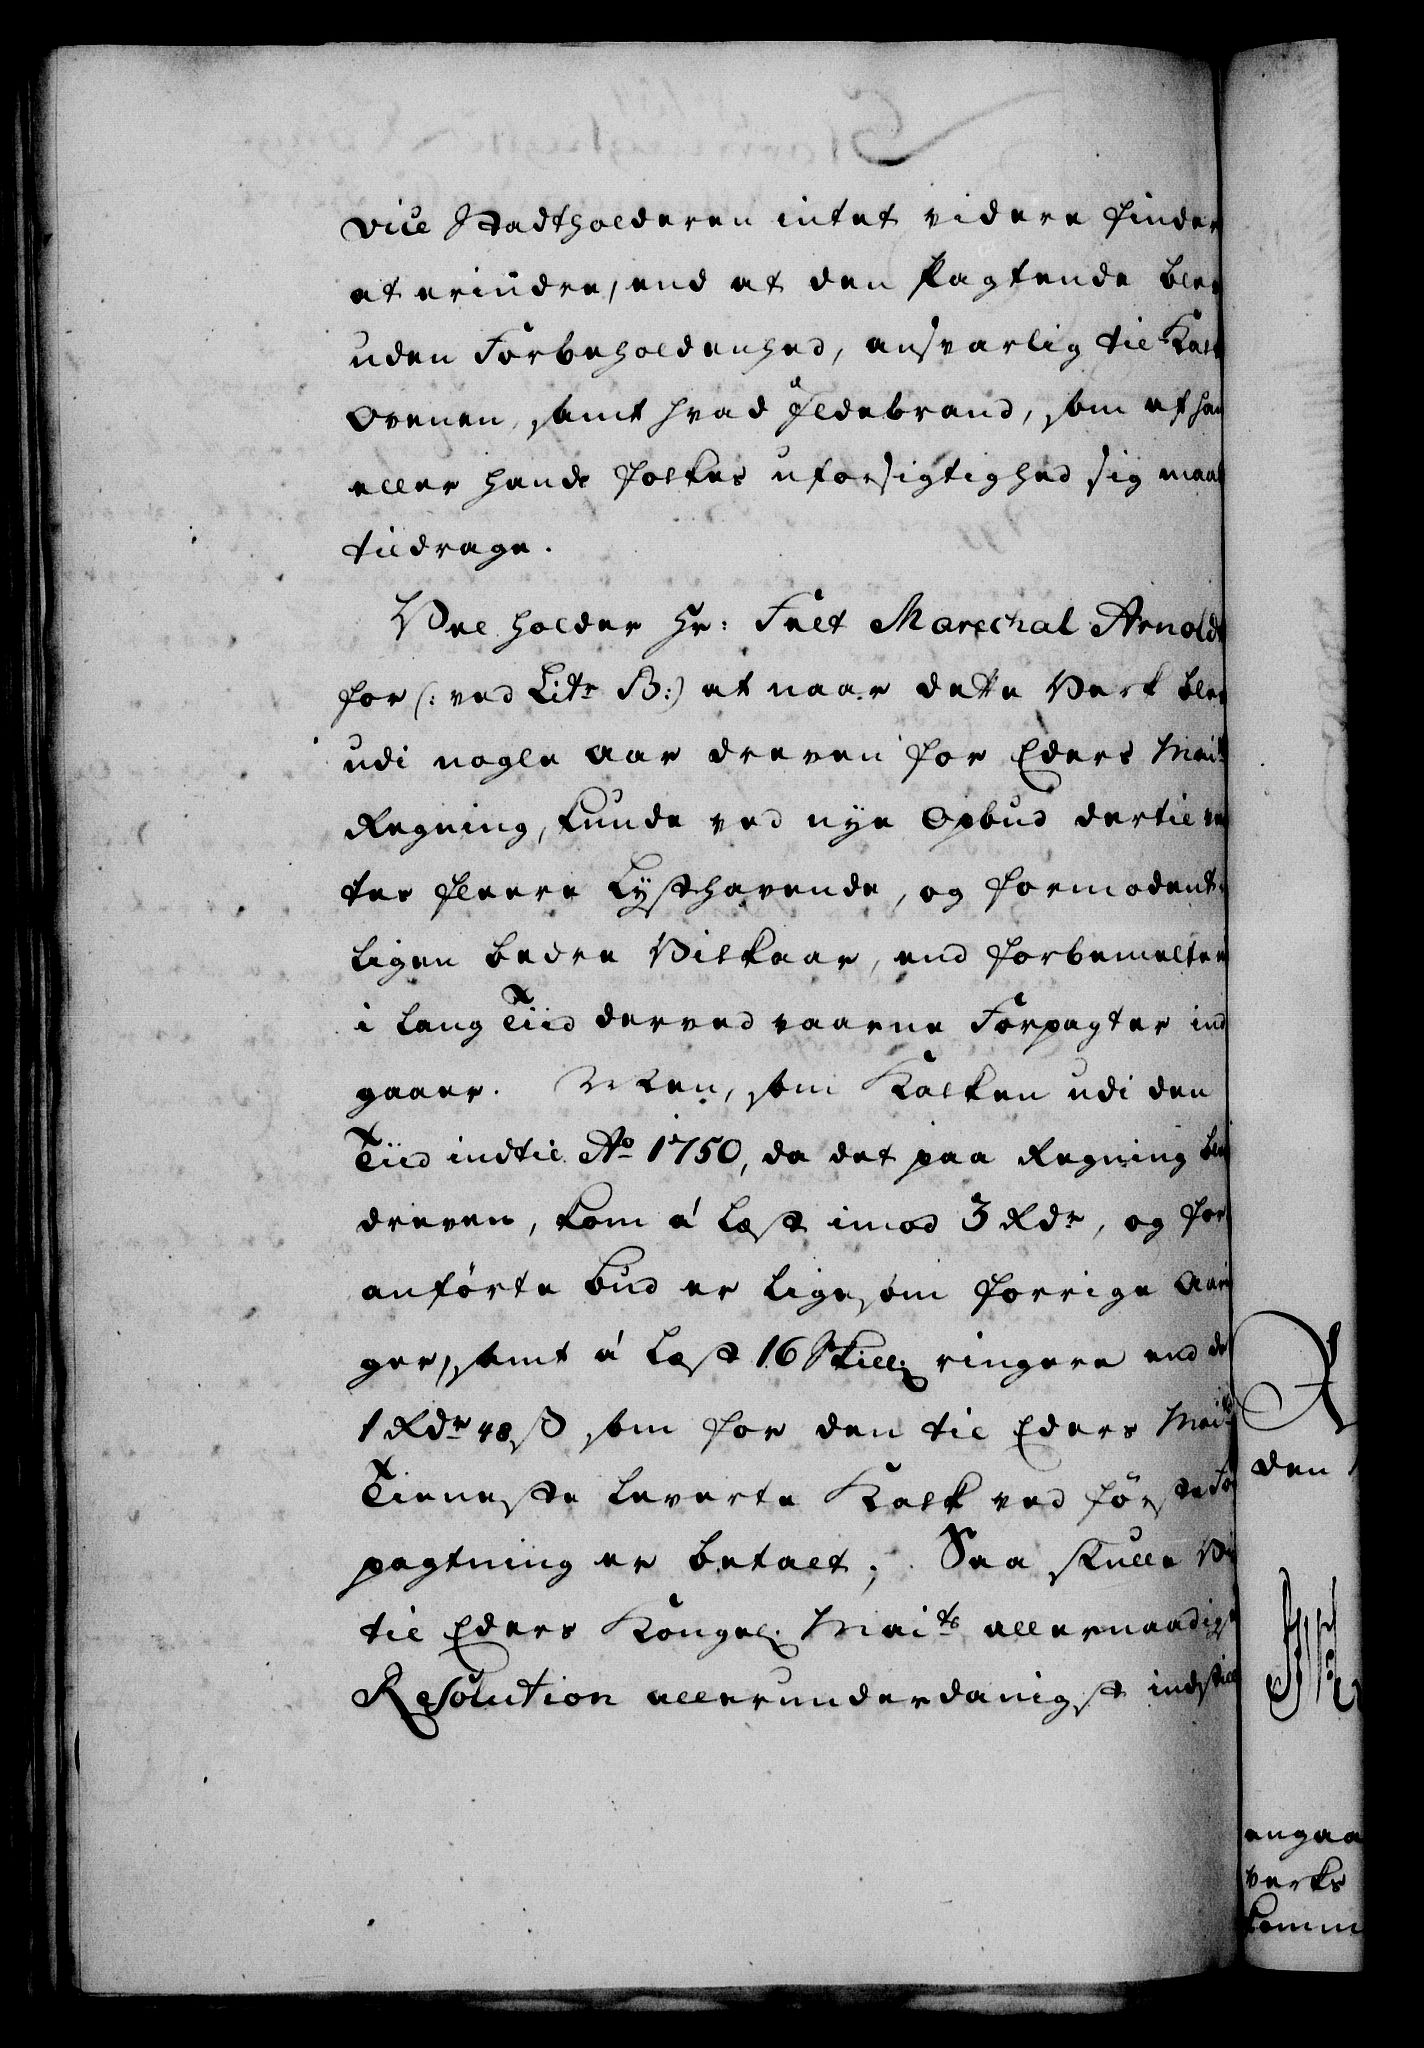 Vice Stadtholderen intet videre finder
at erindre, end at den Pagtende bliver
uden Forbeholdenhed, ansvarlig til Kalk
Ovenen, samt hvad Ildebrand, som af ham
eller hands Folkes uforsigtighed sig maatte
tildrage.
Vel holder Hr: Felt Marechal Arnoldt
for (: ved Litr B:) at naar dette Verk blev
udi nogle Aar dreven for Eders Maits
Regning, kunde ved nye Opbud dertil ven
tes fleere Lysthavende, og formodent-
ligen bedre Vilkaar, end forbemelte
i lang Tiid derved vaarne Forpagter ind
gaaer. Men, som Kalken udi den
Tiid indtil Ao 1750, da det paa Regning blev
dreven, kom á Læst imod 3 Rdr, og for
anførte bud er ligesom forrige Aarin
ger, samt á Læst 16 Skill: ringere end de
1 Rdr 48 ß som for den til Eders Maits
Tieneste leverte Kalk ved første For
pagtning er betalt; Saa skulle Vi
til Eders Kongel: Maits allernaadigste
Resolution allerunderdanigst indstille
den
angaa
verks
komm